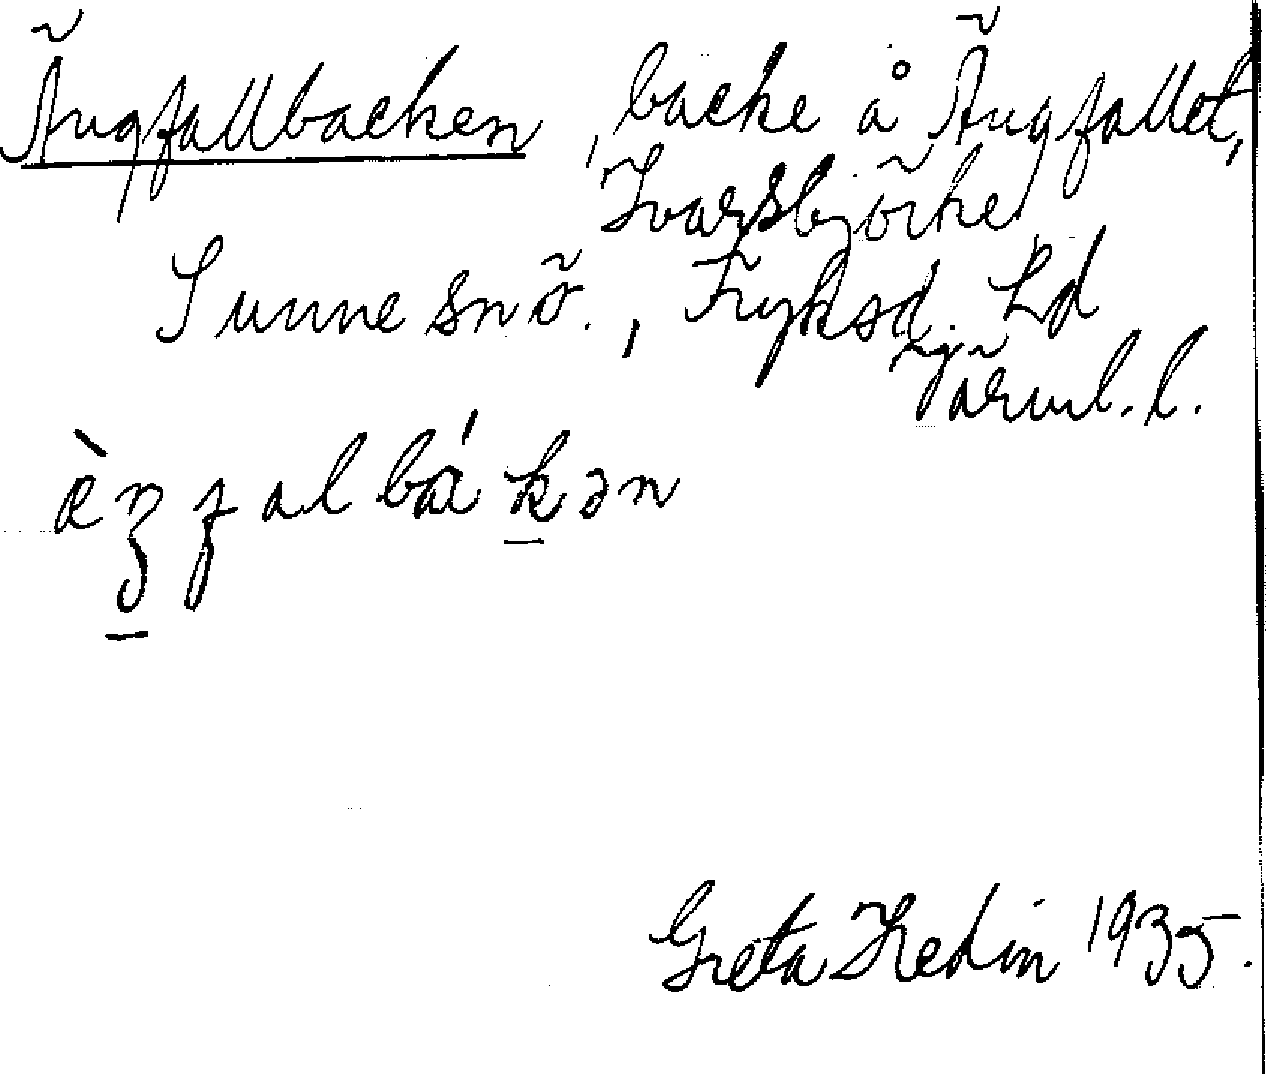 Ängfallbacken, backe å Ängfallet,
Ivarsbjörke
Sunne snö., Fryksd. hd
Värml. l.
Greta Hedin 1935.